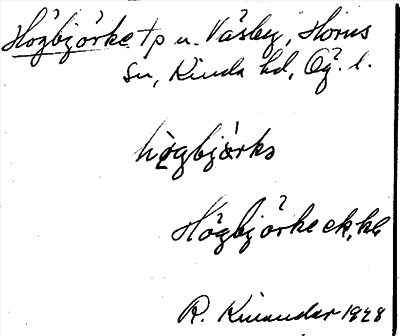 Högbjörke tp u. Väsby, Horns
sn, Kinda hd, Ög. l.
högbjörks
Högbjörke ek, kb
R. Kinander 1928